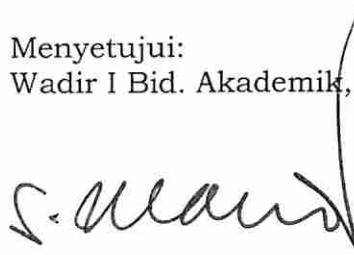 Menyetujui:
Wadir I Bid. Akademik,